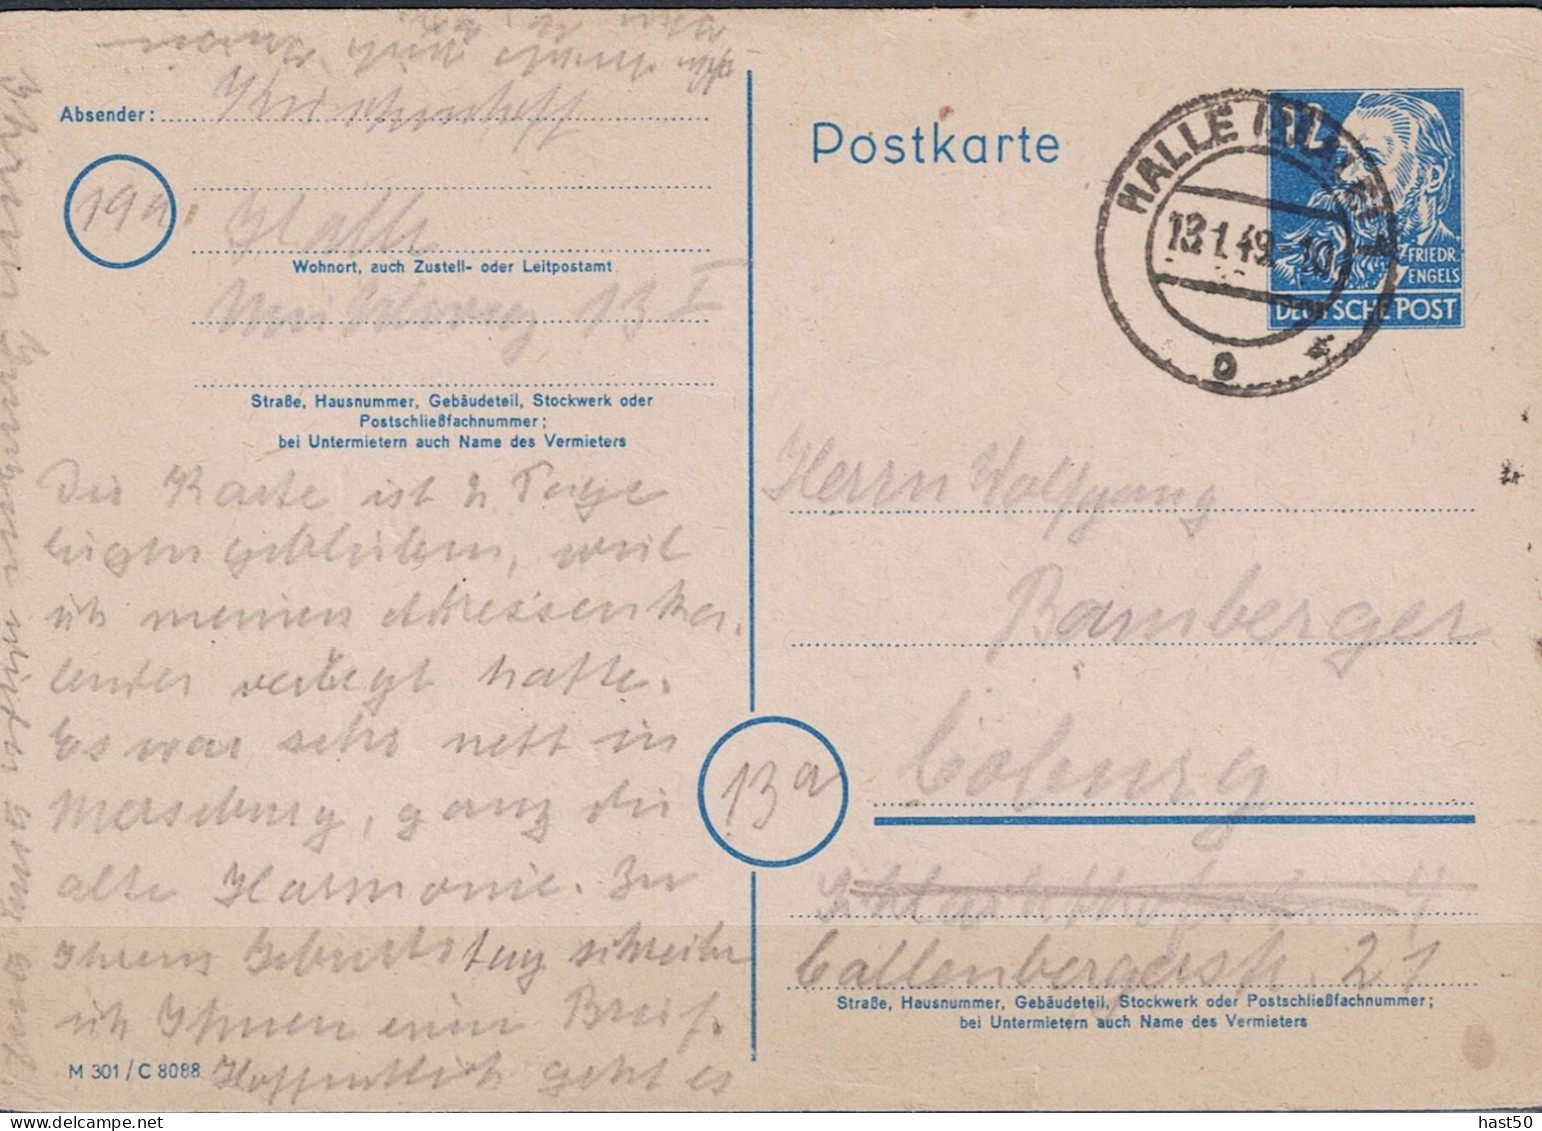 Absender:
19a
Halle
Wohnort, auch Zustell- oder Leitpostamt
13 I
Straße, Hausnummer, Gebäudeteil, Stockwerk oder
Postschließfachnummer;
bei Untermietern auch Name des Vermieters
Die Karte ist 2 Tage
liegen geblieben, weil
ich meinen Adressenka-
lender verlegt hatte.
Es war sehr nett in
Merseburg, ganz die
alte Harmonie. Zu
Ihrem Geburtstag schreibe
ich Ihnen einen Brief.
Hoffentlich geht es
M 301/C 8088
Ihrem Jungen wieder ganz
Postkarte
HALLE (SAALE)
13.1.49.-10
FRIEDR.
ENGELS
DEUTSCHE POST
Herrn Wolfgang
Bamberger
13a
Coburg
Schlachthofstr. 4
Callenbergerstr. 21
Straße, Hausnummer, Gebäudeteil, Stockwerk oder Postschließfachnummer;
bei Untermietern auch Name des Vermieters
hast50